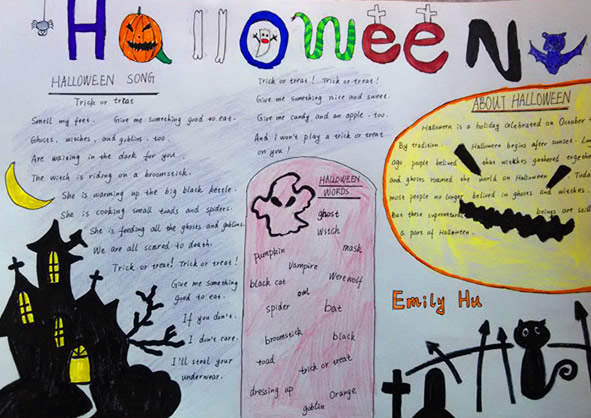 Halloween
HALLOWEEN SONG
Trick or treat
Smell my feet. Give me something good to eat.
Ghosts, witches, and goblins, too.
Are waiting in the dark for you
The witch is riding on a broomstick.
She is warming up the big black kettle.
She is cooking small toads and spiders.
She is feeding all the ghosts and goblins.
We are all scared to death.
Trick or treat! Trick or treat!
Give me something
good to eat.
If you don't.
I don't care.
I'll steal your
underwear.
Trick or treat! Trick or treat!
Give me something nice and sweet.
Give me candy and an apple, too.
And I won't play a trick or treat
on you!
HALLOWEEN
WORDS
ghost
witch
pumpkin
mask
vampire
black cat
Werewolf
owl
spider
bat
broomstick
black
toad
trick or treat
dressing up
Orange
goblin
ABOUT HALLOWEEN
Halloween is a holiday celebrated on October
By tradition Halloween begins after sunset.
ago people believed that witches gathered together
and ghosts roamed the world on Halloween.
most people no longer belived in ghosts and witches.
But these beings are
a part of Halloween.
Emily Hu